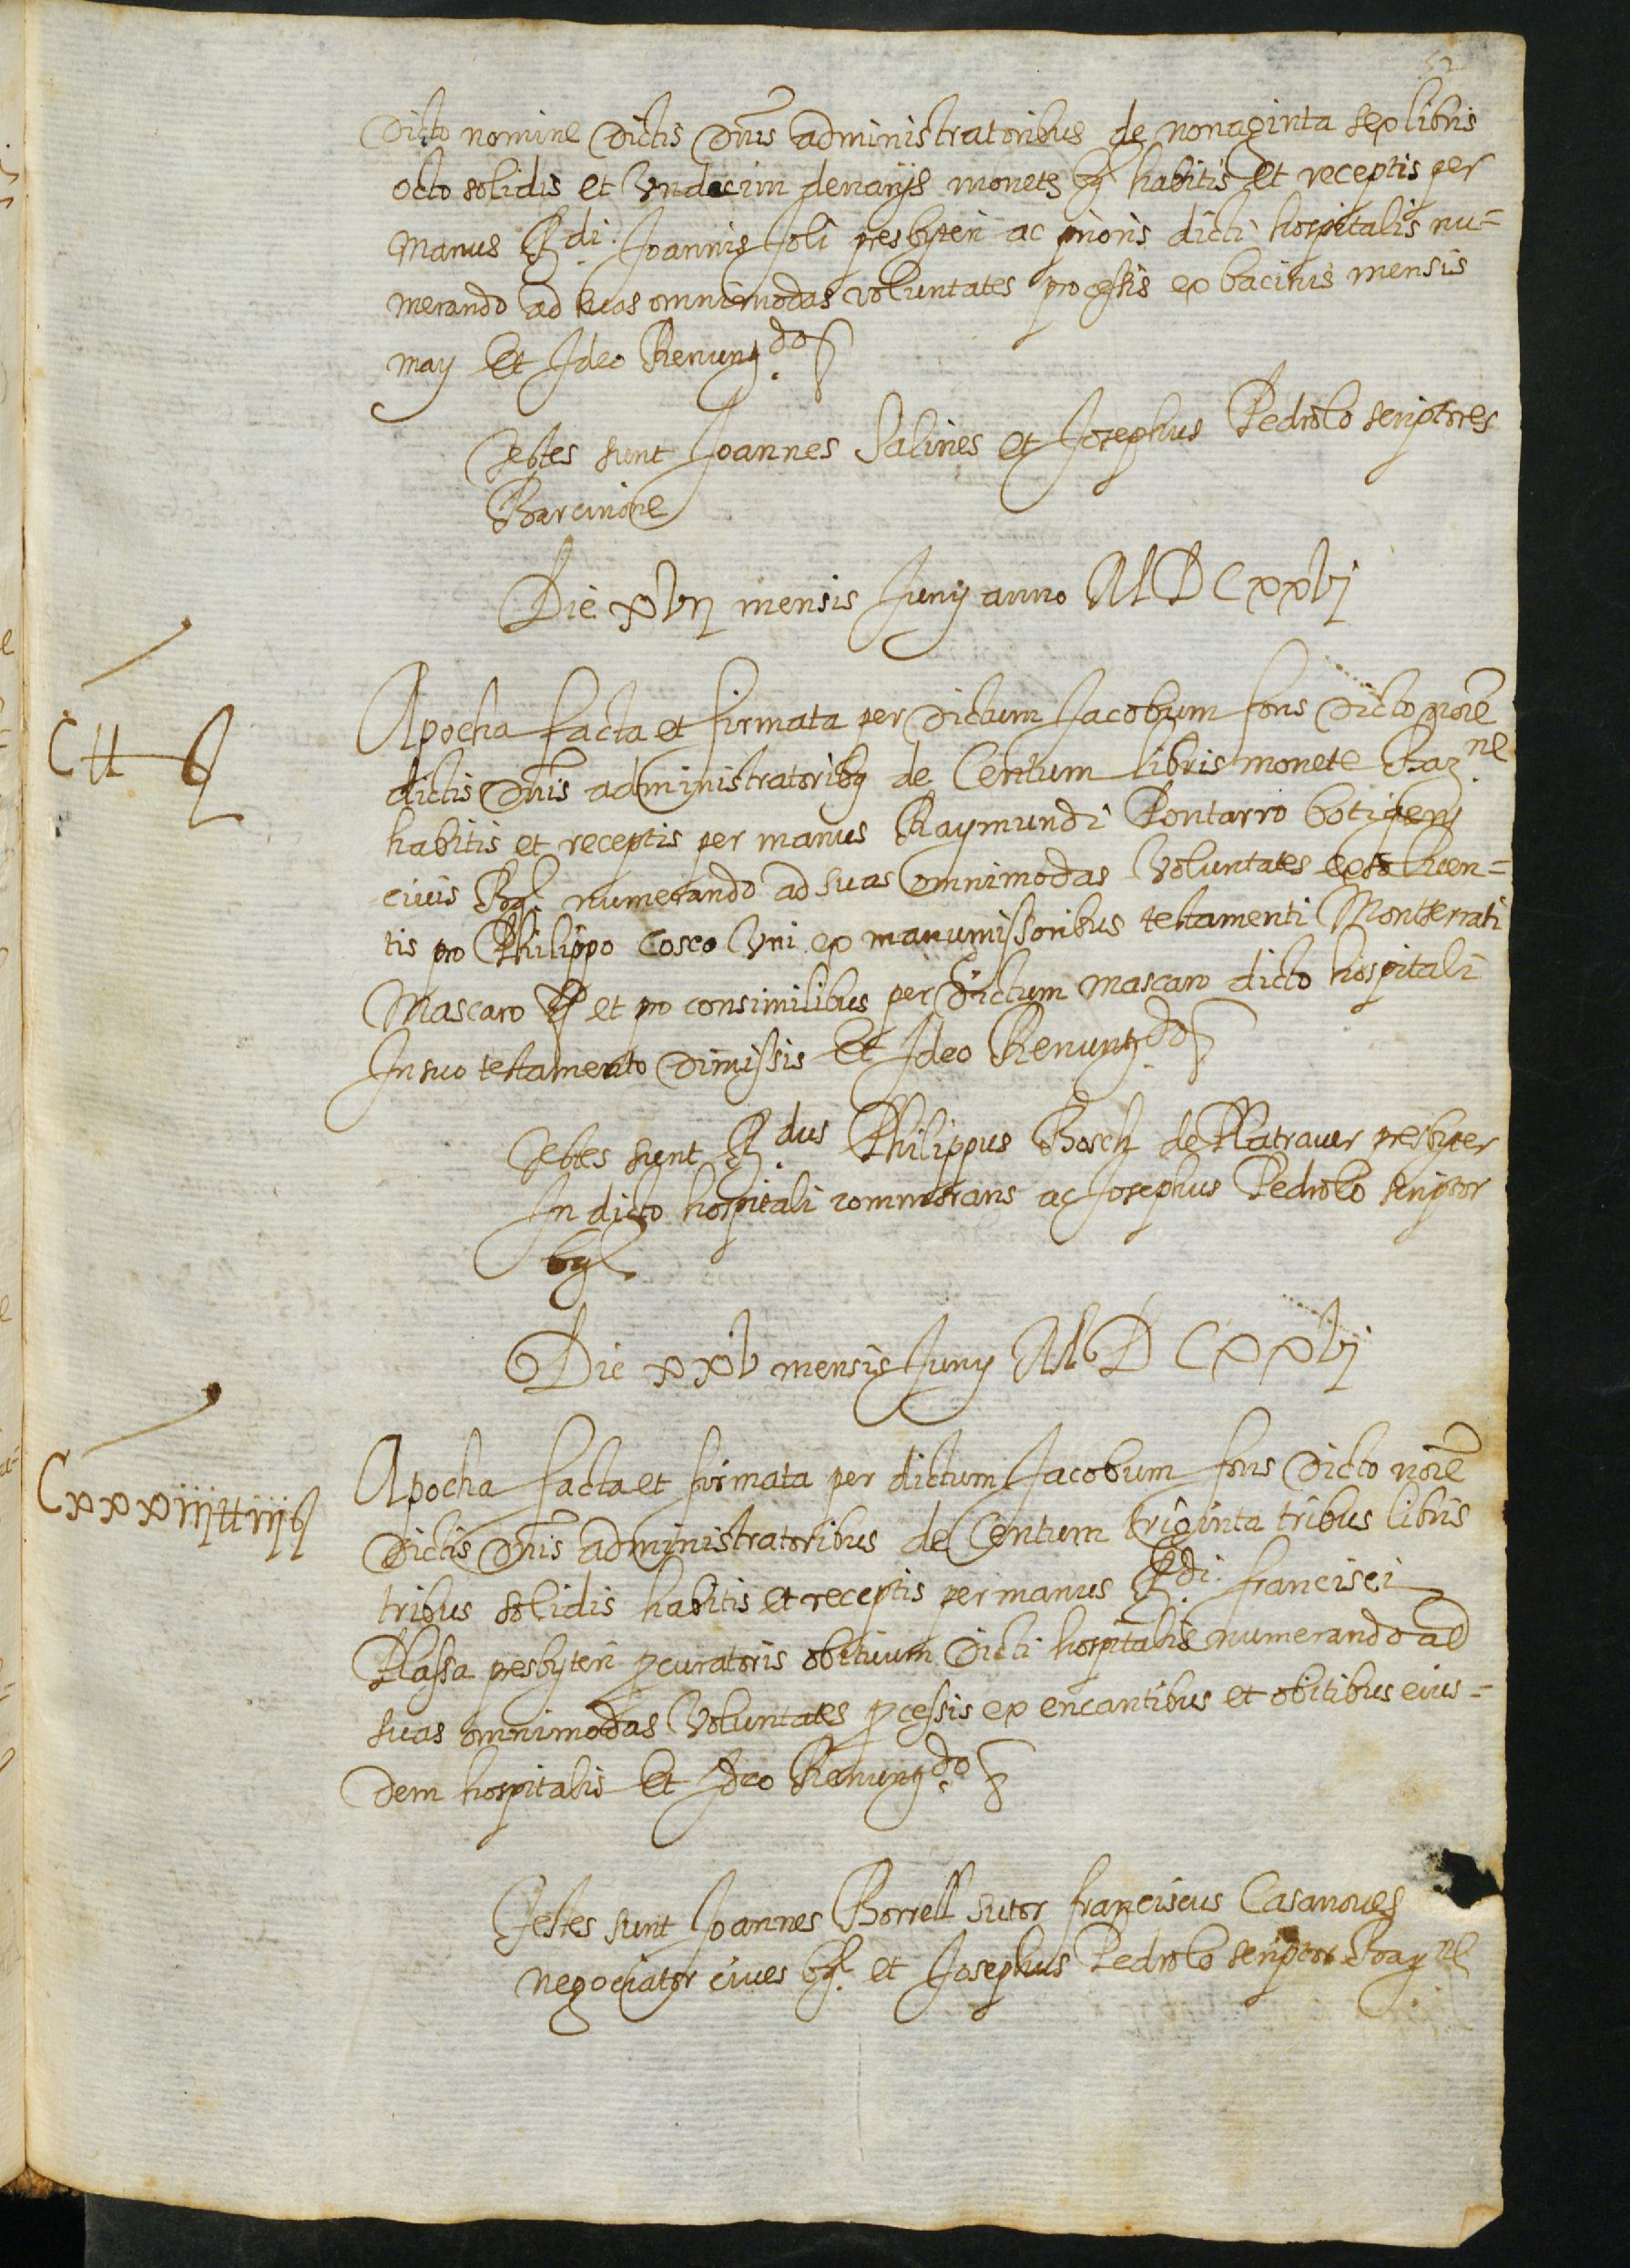 52
Dicto nomine Dictis Dnis administratoribus de nonaginta sex libris
octo solidis et Undecim denarijs monete bar habitis et receptis per
manus Rdi. Joannis Joli presbyteri ac prioris dicti hospitalis nu=
merando ad suas omnimodas voluntates processis ex bacinis mensis
may Et Ideo Renunt.do
Testes sunt Joannes Salines et Josephus Pedrolo scriptores
Barcinone
Die xvij mensis Junij anno MDCxxvj
Ctt
Apocha facta et firmata per Dictum Jacobum fons Dicto noie
dictis Dnis administratoribq de Centum libris monete Bar.ne
habitis et receptis per manus Raymundi Pontarro botigerij
civis Bar. numerando ad suas omnimodas Voluntates exsolven=
tis pro Philippo Cosco Uni ex manumissoribus testamenti Montserrati
Mascaro et pro consimilibus per Dictum mascaro dicto hospitali
In suo testamento Dimissis Et Ideo Renunt.do
Testes sunt R.dus Philippus Bosch de Platraver presbyter
In dicto hospitali commorans ac Josephus Pedrolo scriptor
bar
Die xxv mensis Juny MDCxxvj
Cxxxiijttiijs
Apocha facta et firmata per dictum Jacobum fons Dicto noie
Dictis Dnis administratoribus de Centum triginta tribus libris
tribus solidis habitis et receptis per manus R.di francisci
Plassa presbyteri pcuratoris obituum Dicti hospitalis numerando ad
suas omnimodas Voluntates pcessis ex encantibus et obitibus eius=
dem hospitalis Et Ideo Renunt.do
Testes sunt Joannes Borrell sutor franciscus Casanoves
negociator cives bar. et Josephus Pedrolo scriptor Bar.ne